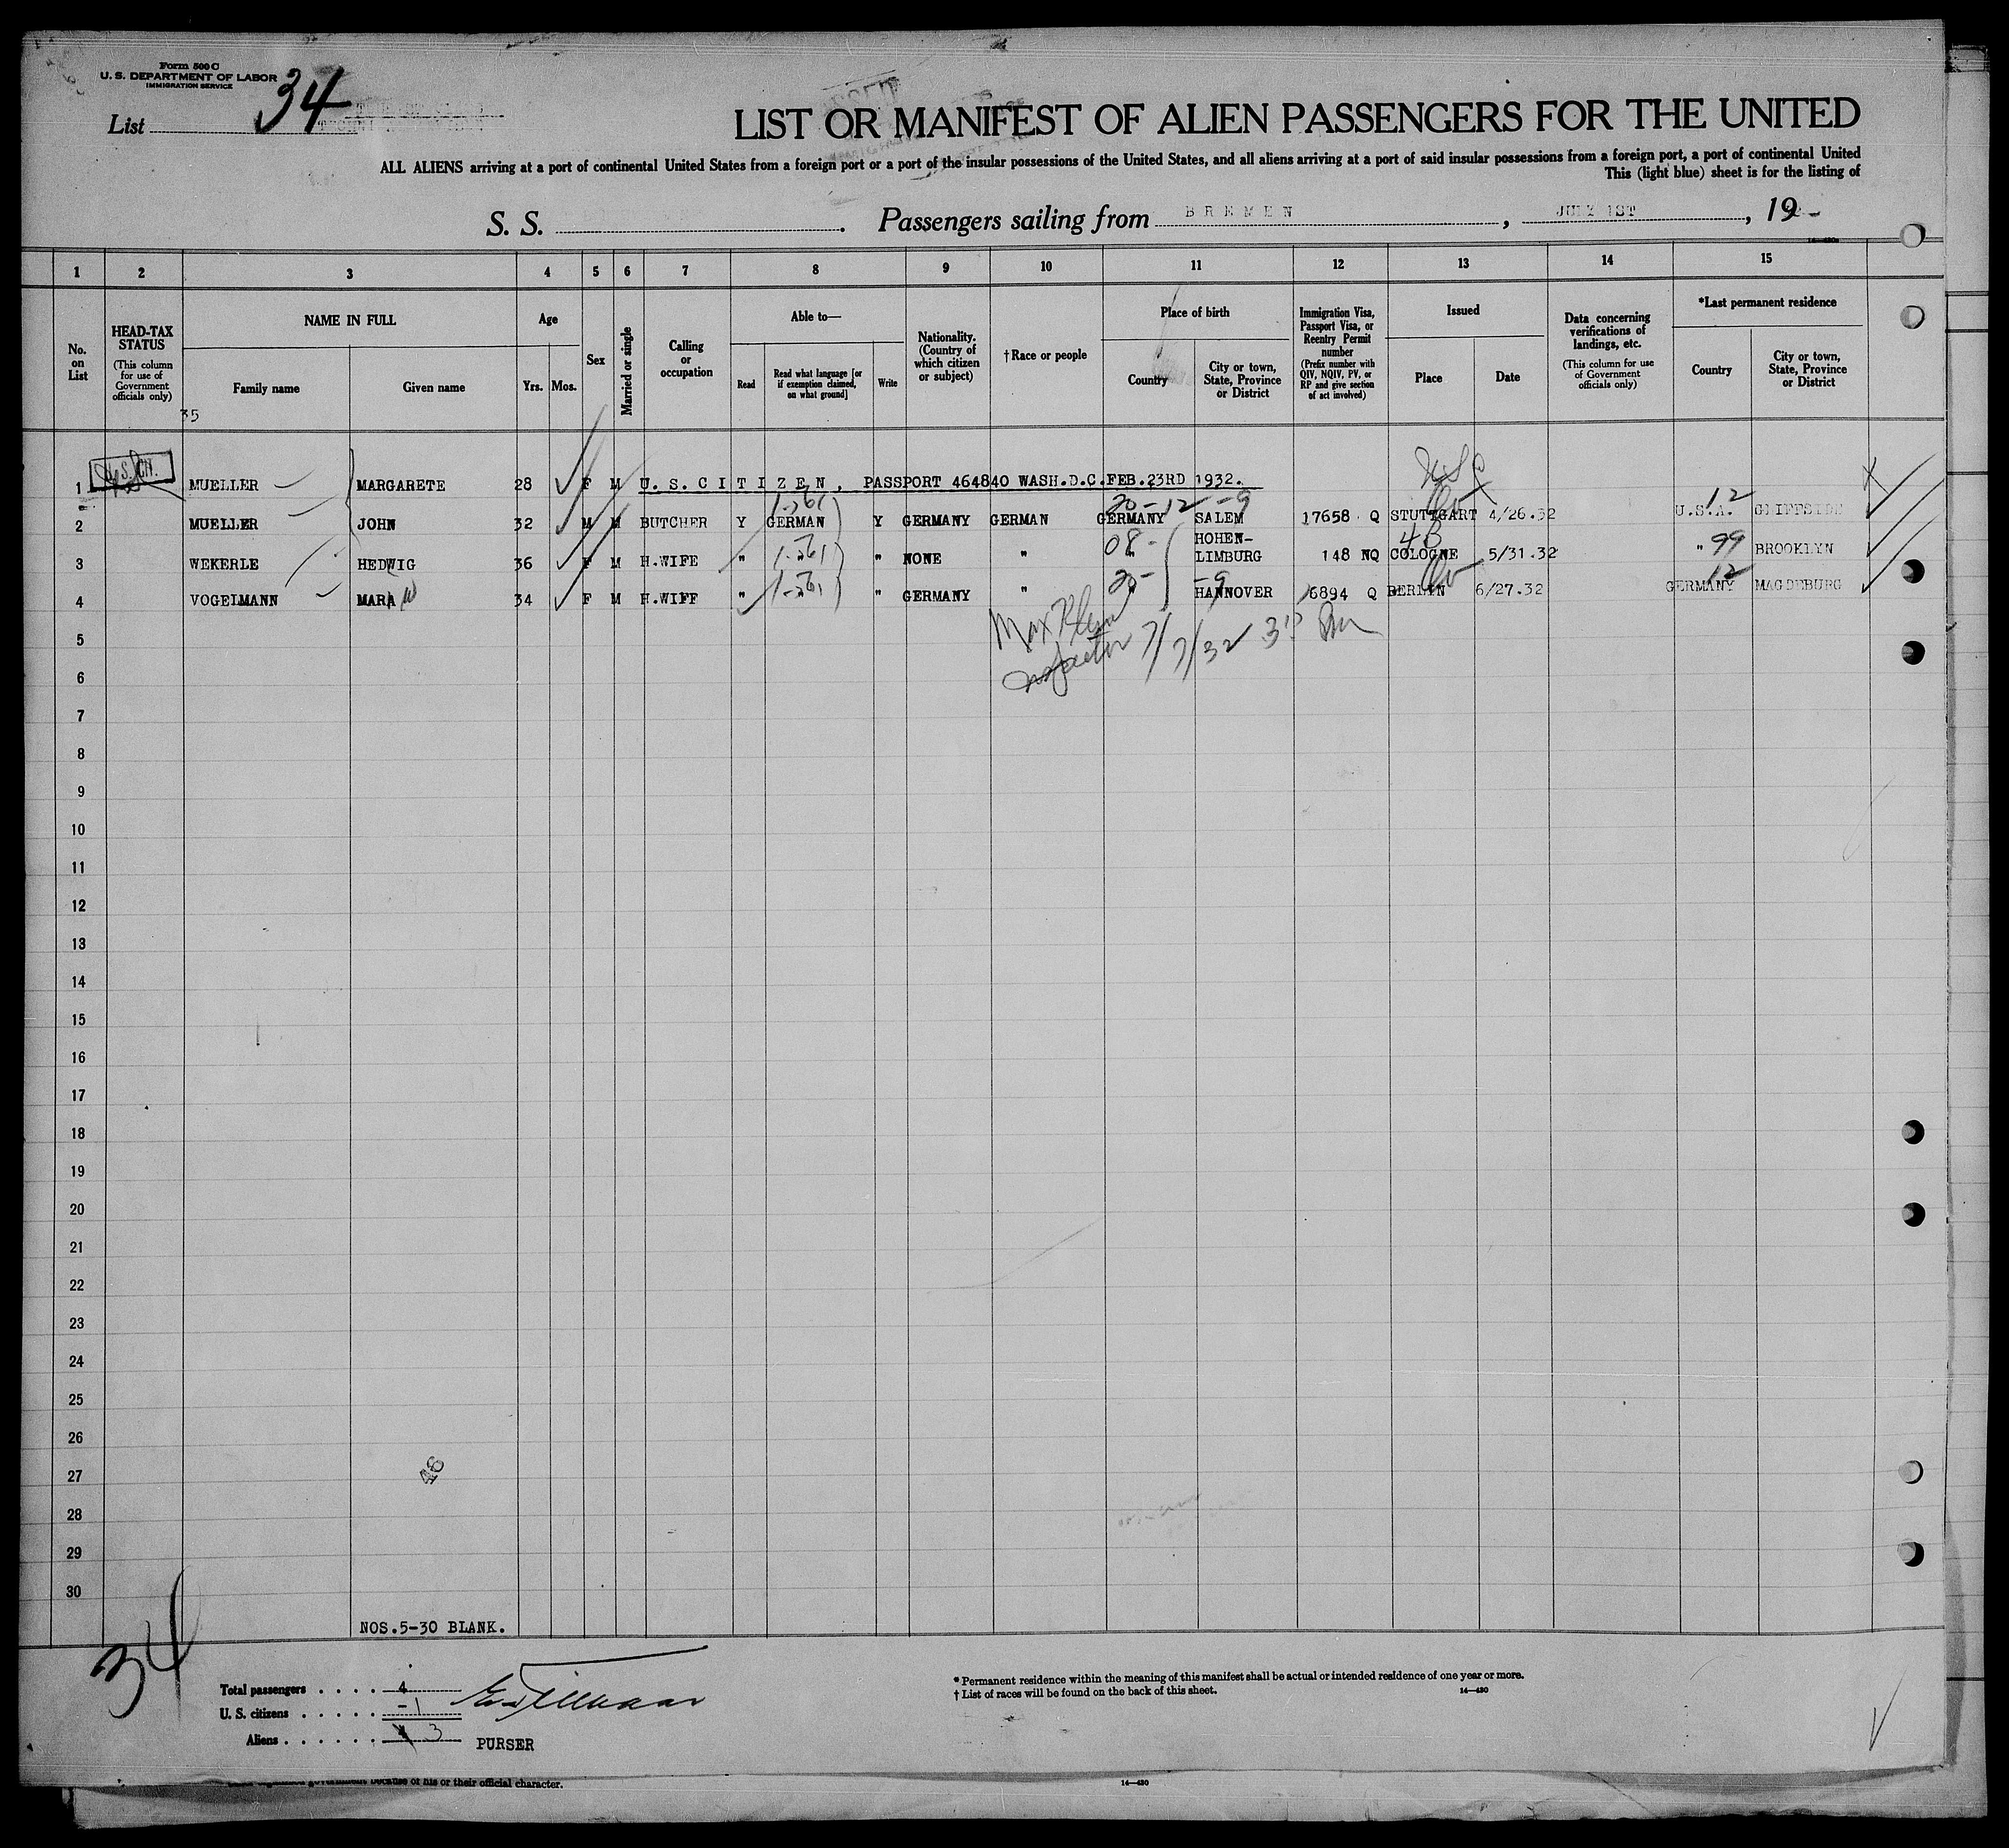 Form 500 C
U. S. DEPARTMENT OF LABOR
IMMIGRATION SERVICE
List 34
LIST OR MANIFEST OF ALIEN PASSENGERS FOR THE UNITED
ALL ALIENS arriving at a port of continental United States from a foreign port or a port of the insular possessions of the United States, and all aliens arriving at a port of said insular possessions from a foreign port, a port of continental United
This (light blue) sheet is for the listing of
S. S. . Passengers sailing from BREMEN , JULY 1ST , 19
14—430
1 2 3 4 5 6 7 8 9 10 11 12 13 14 15
No. on List
HEAD-TAX STATUS
(This column for use of Government officials only)
NAME IN FULL
Family name
Given name
Age
Yrs.
Mos.
Sex
Married or single
Calling or occupation
Able to—
Read
Read what language [or if exemption claimed, on what ground]
Write
Nationality. (Country of which citizen or subject)
† Race or people
Place of birth
Country
City or town, State, Province or District
Immigration Visa, Passport Visa, or Reentry Permit number
(Prefix number with QIV, NQIV, PV, or RP and give section of act involved)
Issued
Place
Date
Data concerning verifications of landings, etc.
(This column for use of Government officials only)
*Last permanent residence
Country
City or town, State, Province or District
35
USC
1 MUELLER MARGARETE 28 F M U.S. CITIZEN, PASSPORT 464840 WASH.D.C.FEB.23RD 1932.
1-261 20-12 -9 12
2 MUELLER JOHN 32 M M BUTCHER Y GERMAN Y GERMANY GERMAN GERMANY SALEM 17658 Q STUTTGART 4/26.32 U.S.A. CLIFFSIDE
1-261 08- 4B 99
3 WEKERLE HEDWIG 36 F M H.WIFE " " " NONE " " HOHEN-
LIMBURG 148 NQ COLOGNE 5/31.32 " BROOKLYN
1-261 20- -9 12
4 VOGELMANN MARA 34 F M H.WIFE " " " GERMANY " " HANNOVER 6894 Q BERLIN 6/27.32 GERMANY MAGDEBURG
Max Klein
Inspector 7/7/32
5
6
7
8
9
10
11
12
13
14
15
16
17
18
19
20
21
22
23
24
25
26
27
28
29
30
48
NOS.5-30 BLANK.
34
Total passengers . . . . 4
U. S. citizens . . . . . -1
Aliens . . . . . . 3
PURSER
* Permanent residence within the meaning of this manifest shall be actual or intended residence of one year or more.
† List of races will be found on the back of this sheet.
14—430
of his or their official character.
14—430